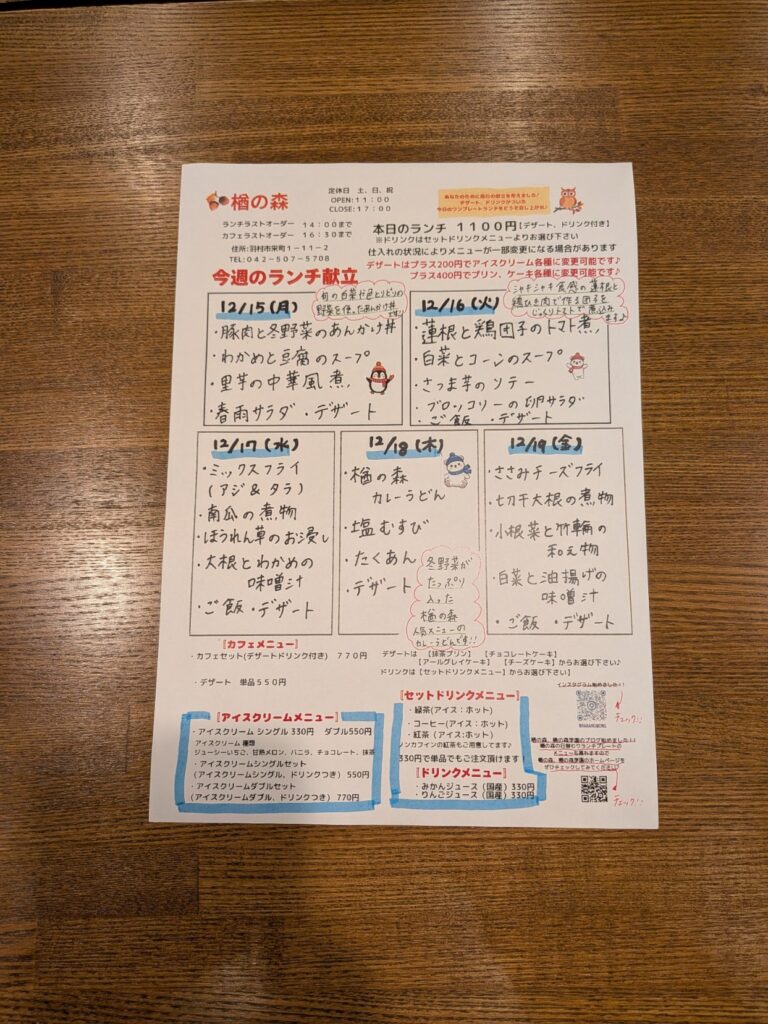 楢の森
定休日 土、日、祝
OPEN:11:00
CLOSE:17:00
あなたのために毎日の献立を考えました!
デザート、ドリンクがついた
今日のワンプレートランチをどうぞ召し上がれ!
ランチラストオーダー 14:00まで
カフェラストオーダー 16:30まで
住所:羽村市栄町1-11-2
TEL:042-507-5708
本日のランチ 1100円【デザート、ドリンク付き】
※ドリンクはセットドリンクメニューよりお選び下さい
仕入れの状況によりメニューが一部変更になる場合があります
デザートはプラス200円でアイスクリーム各種に変更可能です♪
プラス400円でプリン、ケーキ各種に変更可能です♪
今週のランチ献立
12/15(月)
旬の白菜や色とりどりの
野菜を使ったあんかけ丼
です!
・豚肉と冬野菜のあんかけ丼
・わかめと豆腐のスープ
・里芋の中華風煮
・春雨サラダ ・デザート
12/16(火)
シャキシャキ食感の蓮根と
鶏ひき肉で作る団子を
じっくりトマトで煮込み
ます♪
・蓮根と鶏団子のトマト煮
・白菜とコーンのスープ
・さつま芋のソテー
・ブロッコリーの卵サラダ
・ご飯 ・デザート
12/17(水)
・ミックスフライ
(アジ&タラ)
・南瓜の煮物
・ほうれん草のお浸し
・大根とわかめの
味噌汁
・ご飯・デザート
12/18(木)
・楢の森
カレーうどん
・塩むすび
・たくあん
・デザート
冬野菜が
たっぷり
入った
楢の森
人気メニューの
カレーうどんです!!
12/19(金)
・ささみチーズフライ
・切干大根の煮物
・小松菜と竹輪の
和え物
・白菜と油揚げの
味噌汁
・ご飯 ・デザート
【カフェメニュー】
・カフェセット(デザートドリンク付き) 770円
・デザート 単品550円
デザートは 【抹茶プリン】 【チョコレートケーキ】
【アールグレイケーキ】 【チーズケーキ】からお選び下さい♪
ドリンクは【セットドリンクメニュー】からお選び下さい】
【アイスクリームメニュー】
・アイスクリーム シングル 330円 ダブル550円
アイスクリーム 種類
ジューシーいちご、甘熟メロン、バニラ、チョコレート、抹茶
・アイスクリームシングルセット
(アイスクリームシングル、ドリンクつき) 550円
・アイスクリームダブルセット
(アイスクリームダブル、ドリンクつき) 770円
【セットドリンクメニュー】
・緑茶(アイス:ホット)
・コーヒー(アイス:ホット)
・紅茶 (アイス:ホット)
ノンカフェインの紅茶もご用意してます♪
330円で単品でもご注文頂けます!
【ドリンクメニュー】
・みかんジュース (国産) 330円
・りんごジュース (国産) 330円
インスタグラム始めました!!
チェック!!
楢の森、楢の森学園のブログ始めました!!
楢の森の日替わりランチプレートの
メニューも見れますので
楢の森、楢の森学園のホームページを
ぜひチェックしてみてください
チェック!!